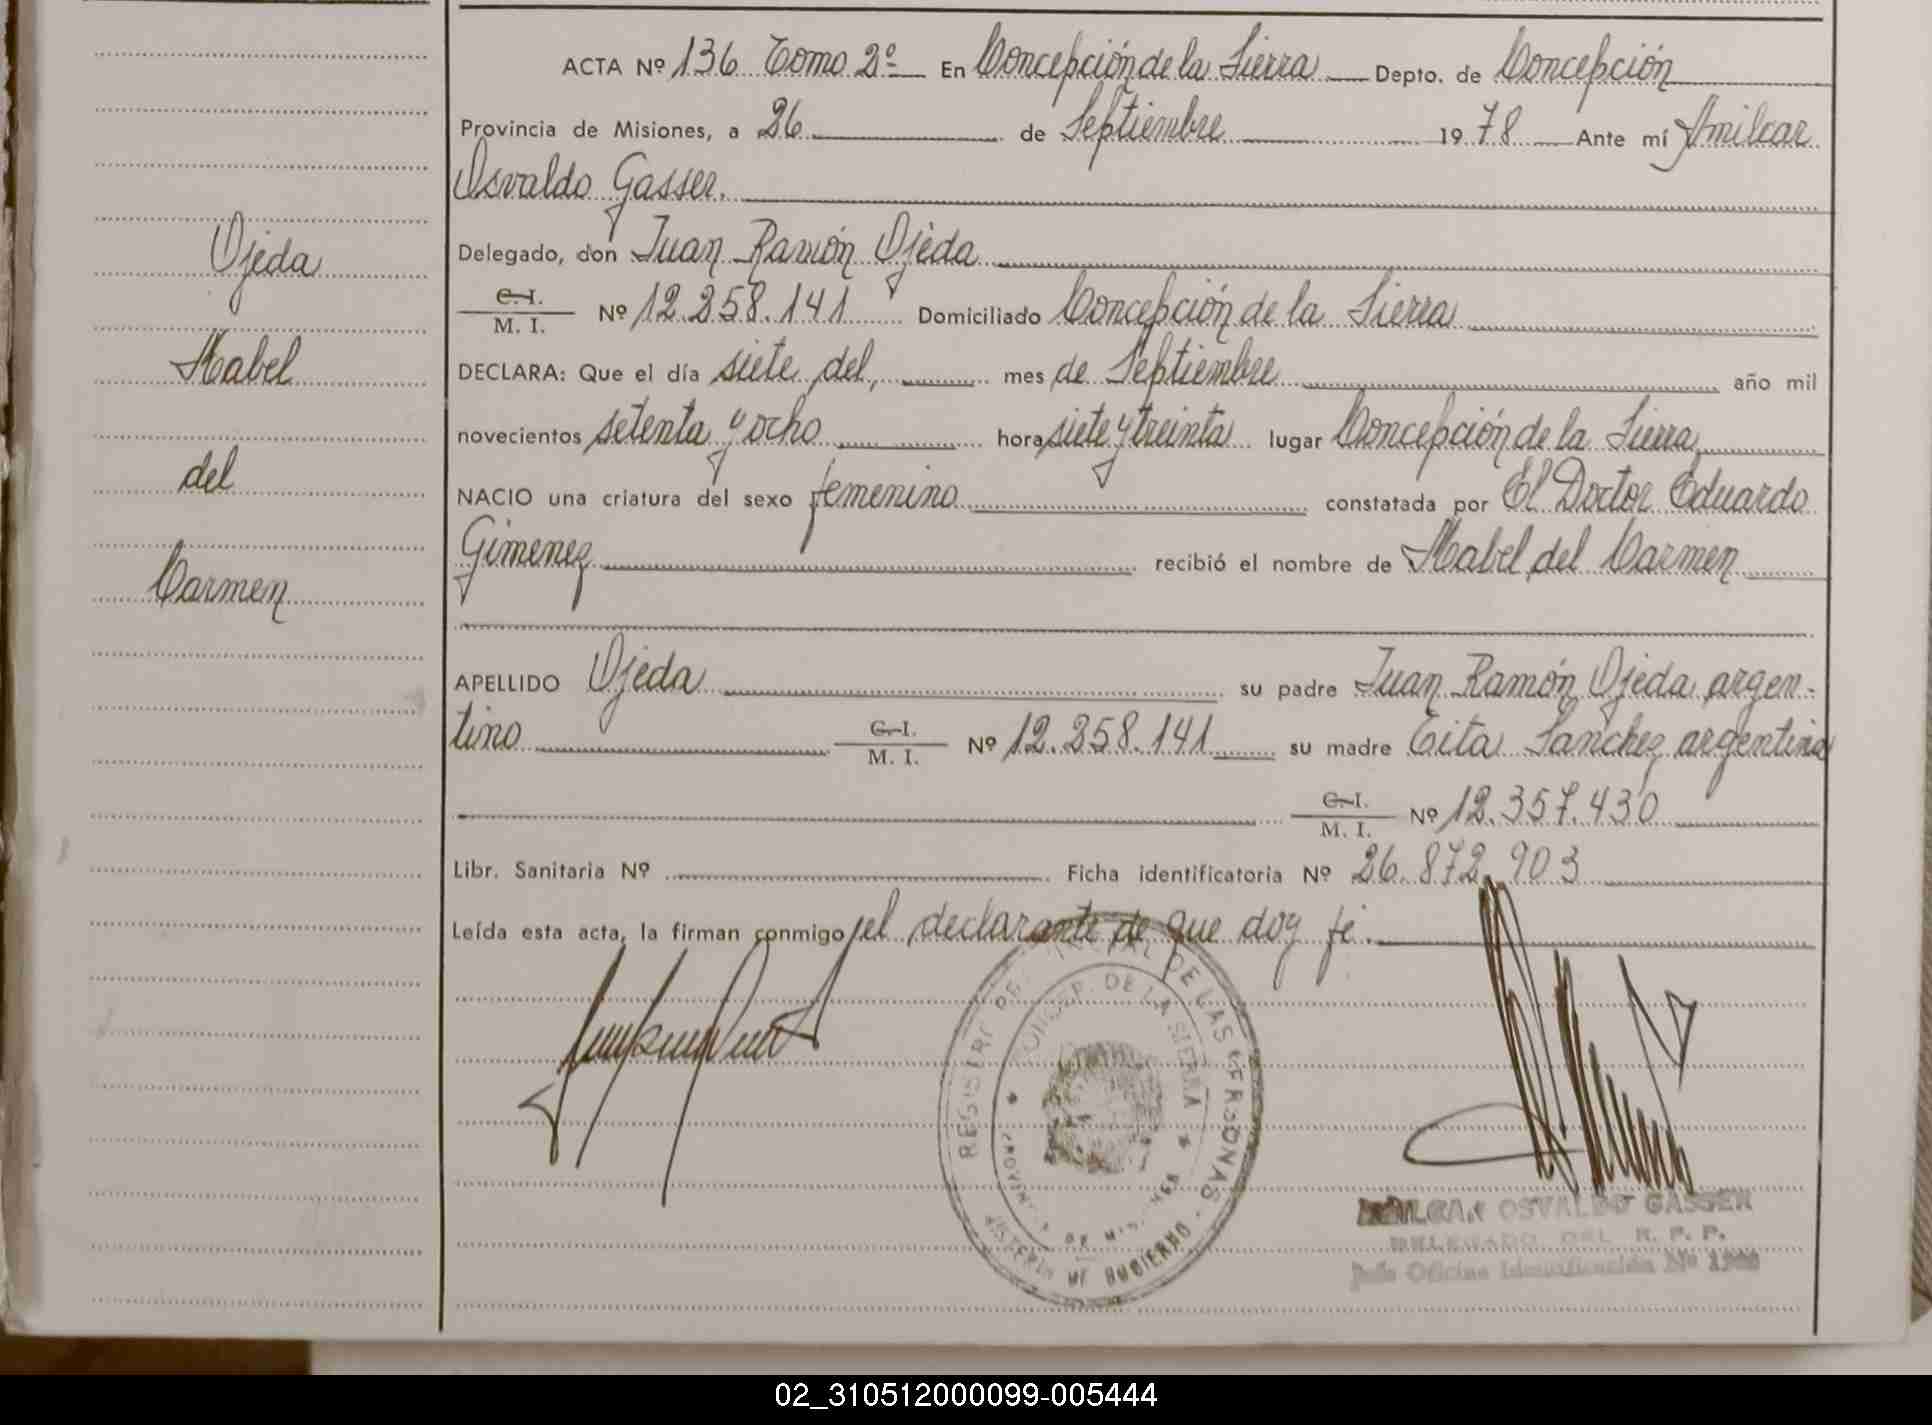 ACTA Nº 136 Tomo 2º En Concepción de la Sierra Depto. de Concepción
Provincia de Misiones, a 26 de Septiembre 1978 Ante mí Amilcar
Osvaldo Gasser.
Delegado, don Juan Ramón Ojeda
C. I.
M. I. Nº 12.258.141 Domiciliado Concepción de la Sierra
DECLARA: Que el día siete del, mes de Septiembre año mil
novecientos setenta y ocho hora siete y treinta lugar Concepción de la Sierra
NACIO una criatura del sexo femenino constatada por El Doctor Eduardo
Gimenez recibió el nombre de Mabel del Carmen
APELLIDO Ojeda su padre Juan Ramón Ojeda argen-
tino C. I. M. I. Nº 12.258.141 su madre Tita Sanchez argentina
C. I.
M. I. Nº 12.357.430
Libr. Sanitaria Nº Ficha identificatoria Nº 26.872.903
Leída esta acta, la firman conmigo el declarante de que doy fe.
Ojeda
Mabel
del
Carmen
DE LAS PERSONAS
DE LA SIERRA
OSVALDO GASSER
DELEGADO DEL R. P. P.
Jefe Oficina Identificación Nº
02_310512000099-005444